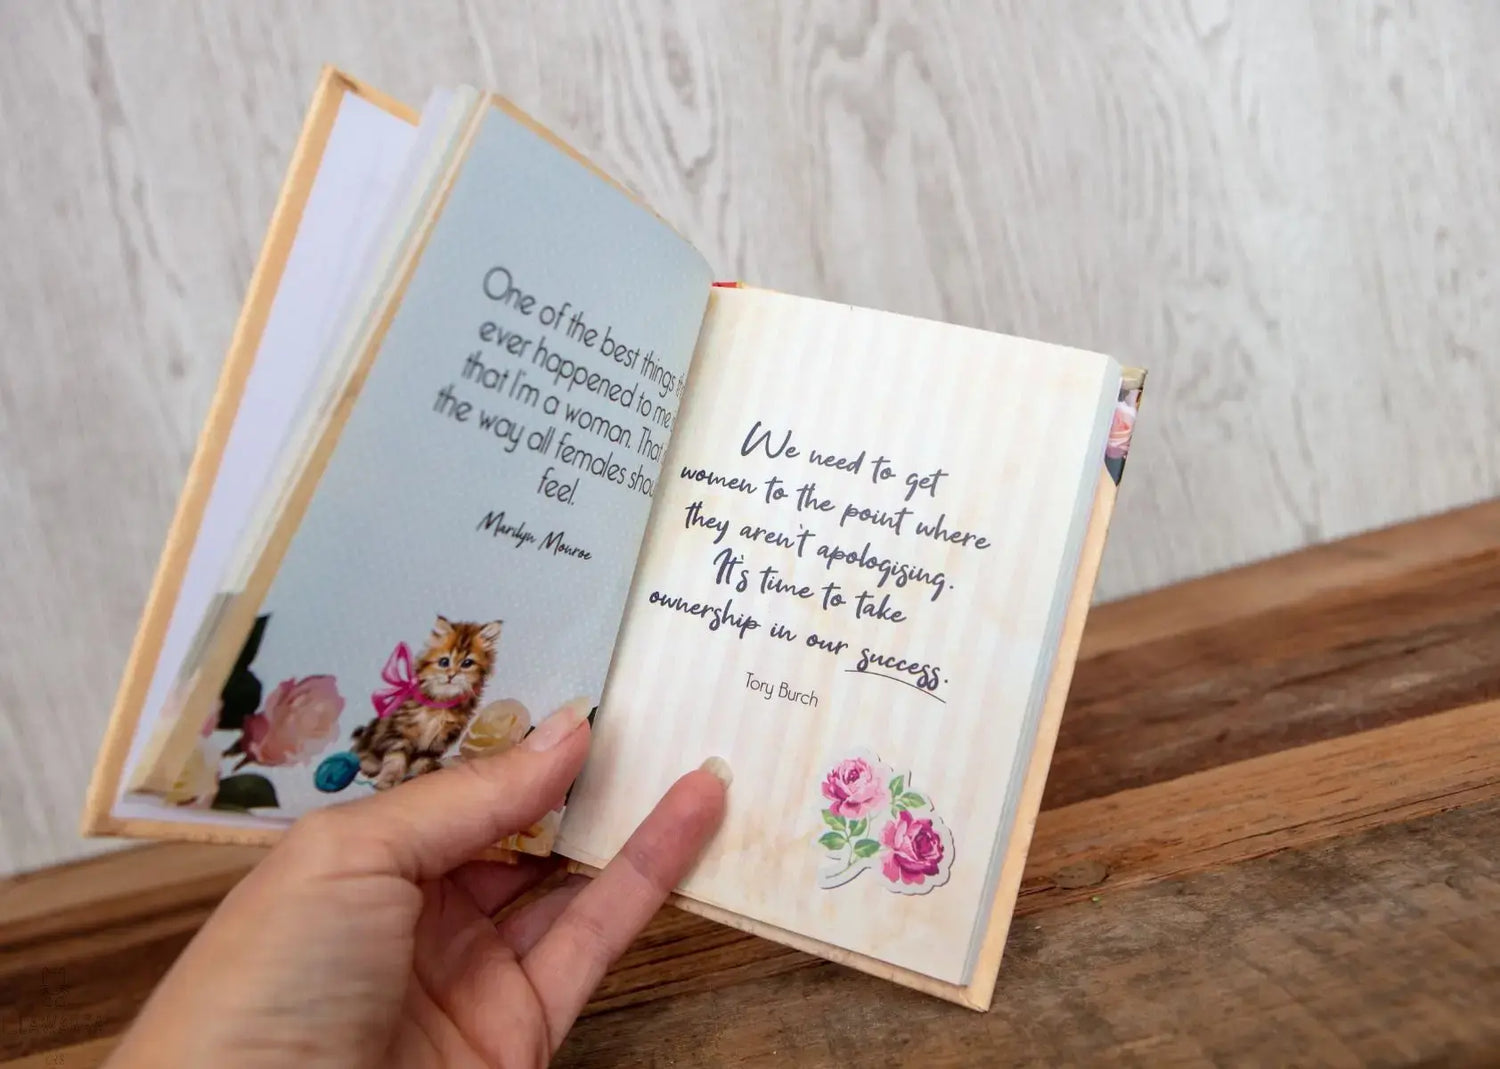 One of the best things
ever happened to me
that I'm a woman. That
the way all females
feel.
Marilyn Monroe
We need to get
women to the point where
they aren't apologising.
It's time to take
ownership in our success.
Tory Burch